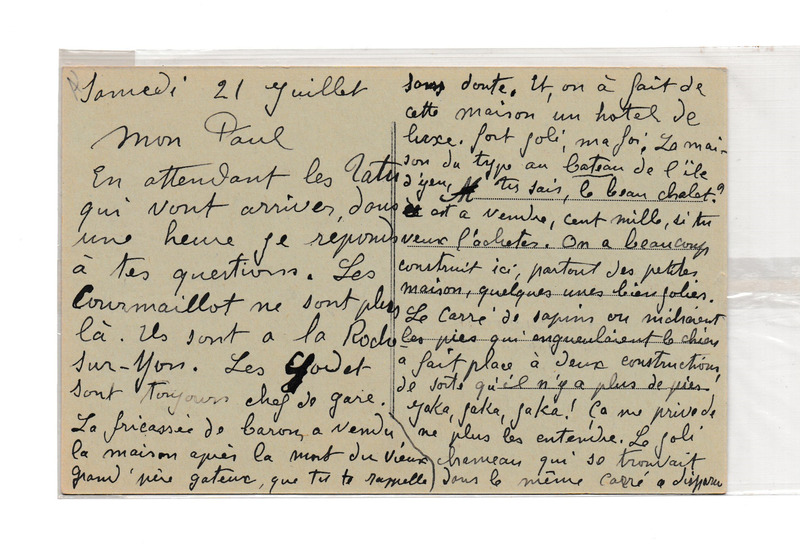 Samedi 21 Juillet
Mon Paul
En attendant les Tatu
qui vont arriver, dans
une heure je réponds
à tes questions. Les
Courmaillot ne sont plus
là. Ils sont a la Roche
sur-Yon. Les Godet
sont toujours chef de gare.
La fricassée de baron, a vendu
la maison après la mort du vieux
grand'père gateux, que tu te rappelle
sans doute. Et, on à fait de
cette maison un hotel de
luxe. fort joli, ma foi. La mai-
son du type au bateau de l'île
d'yeu, tu sais, le beau chalet?
est a vendre, cent mille, si tu
veux l'acheter. On a beaucoup
construit ici, partout des petites
maison, quelques unes bien jolies.
Le carré de sapins ou nichaient
les pies qui engueulaient le chien
a fait place à deux constructions,
de sorte qu'il n'y a plus de pies
Jaka, jaka, jaka! Ça me prive de
ne plus les entendre. Le joli
chameau qui se trouvait
dans le même carré a disparu